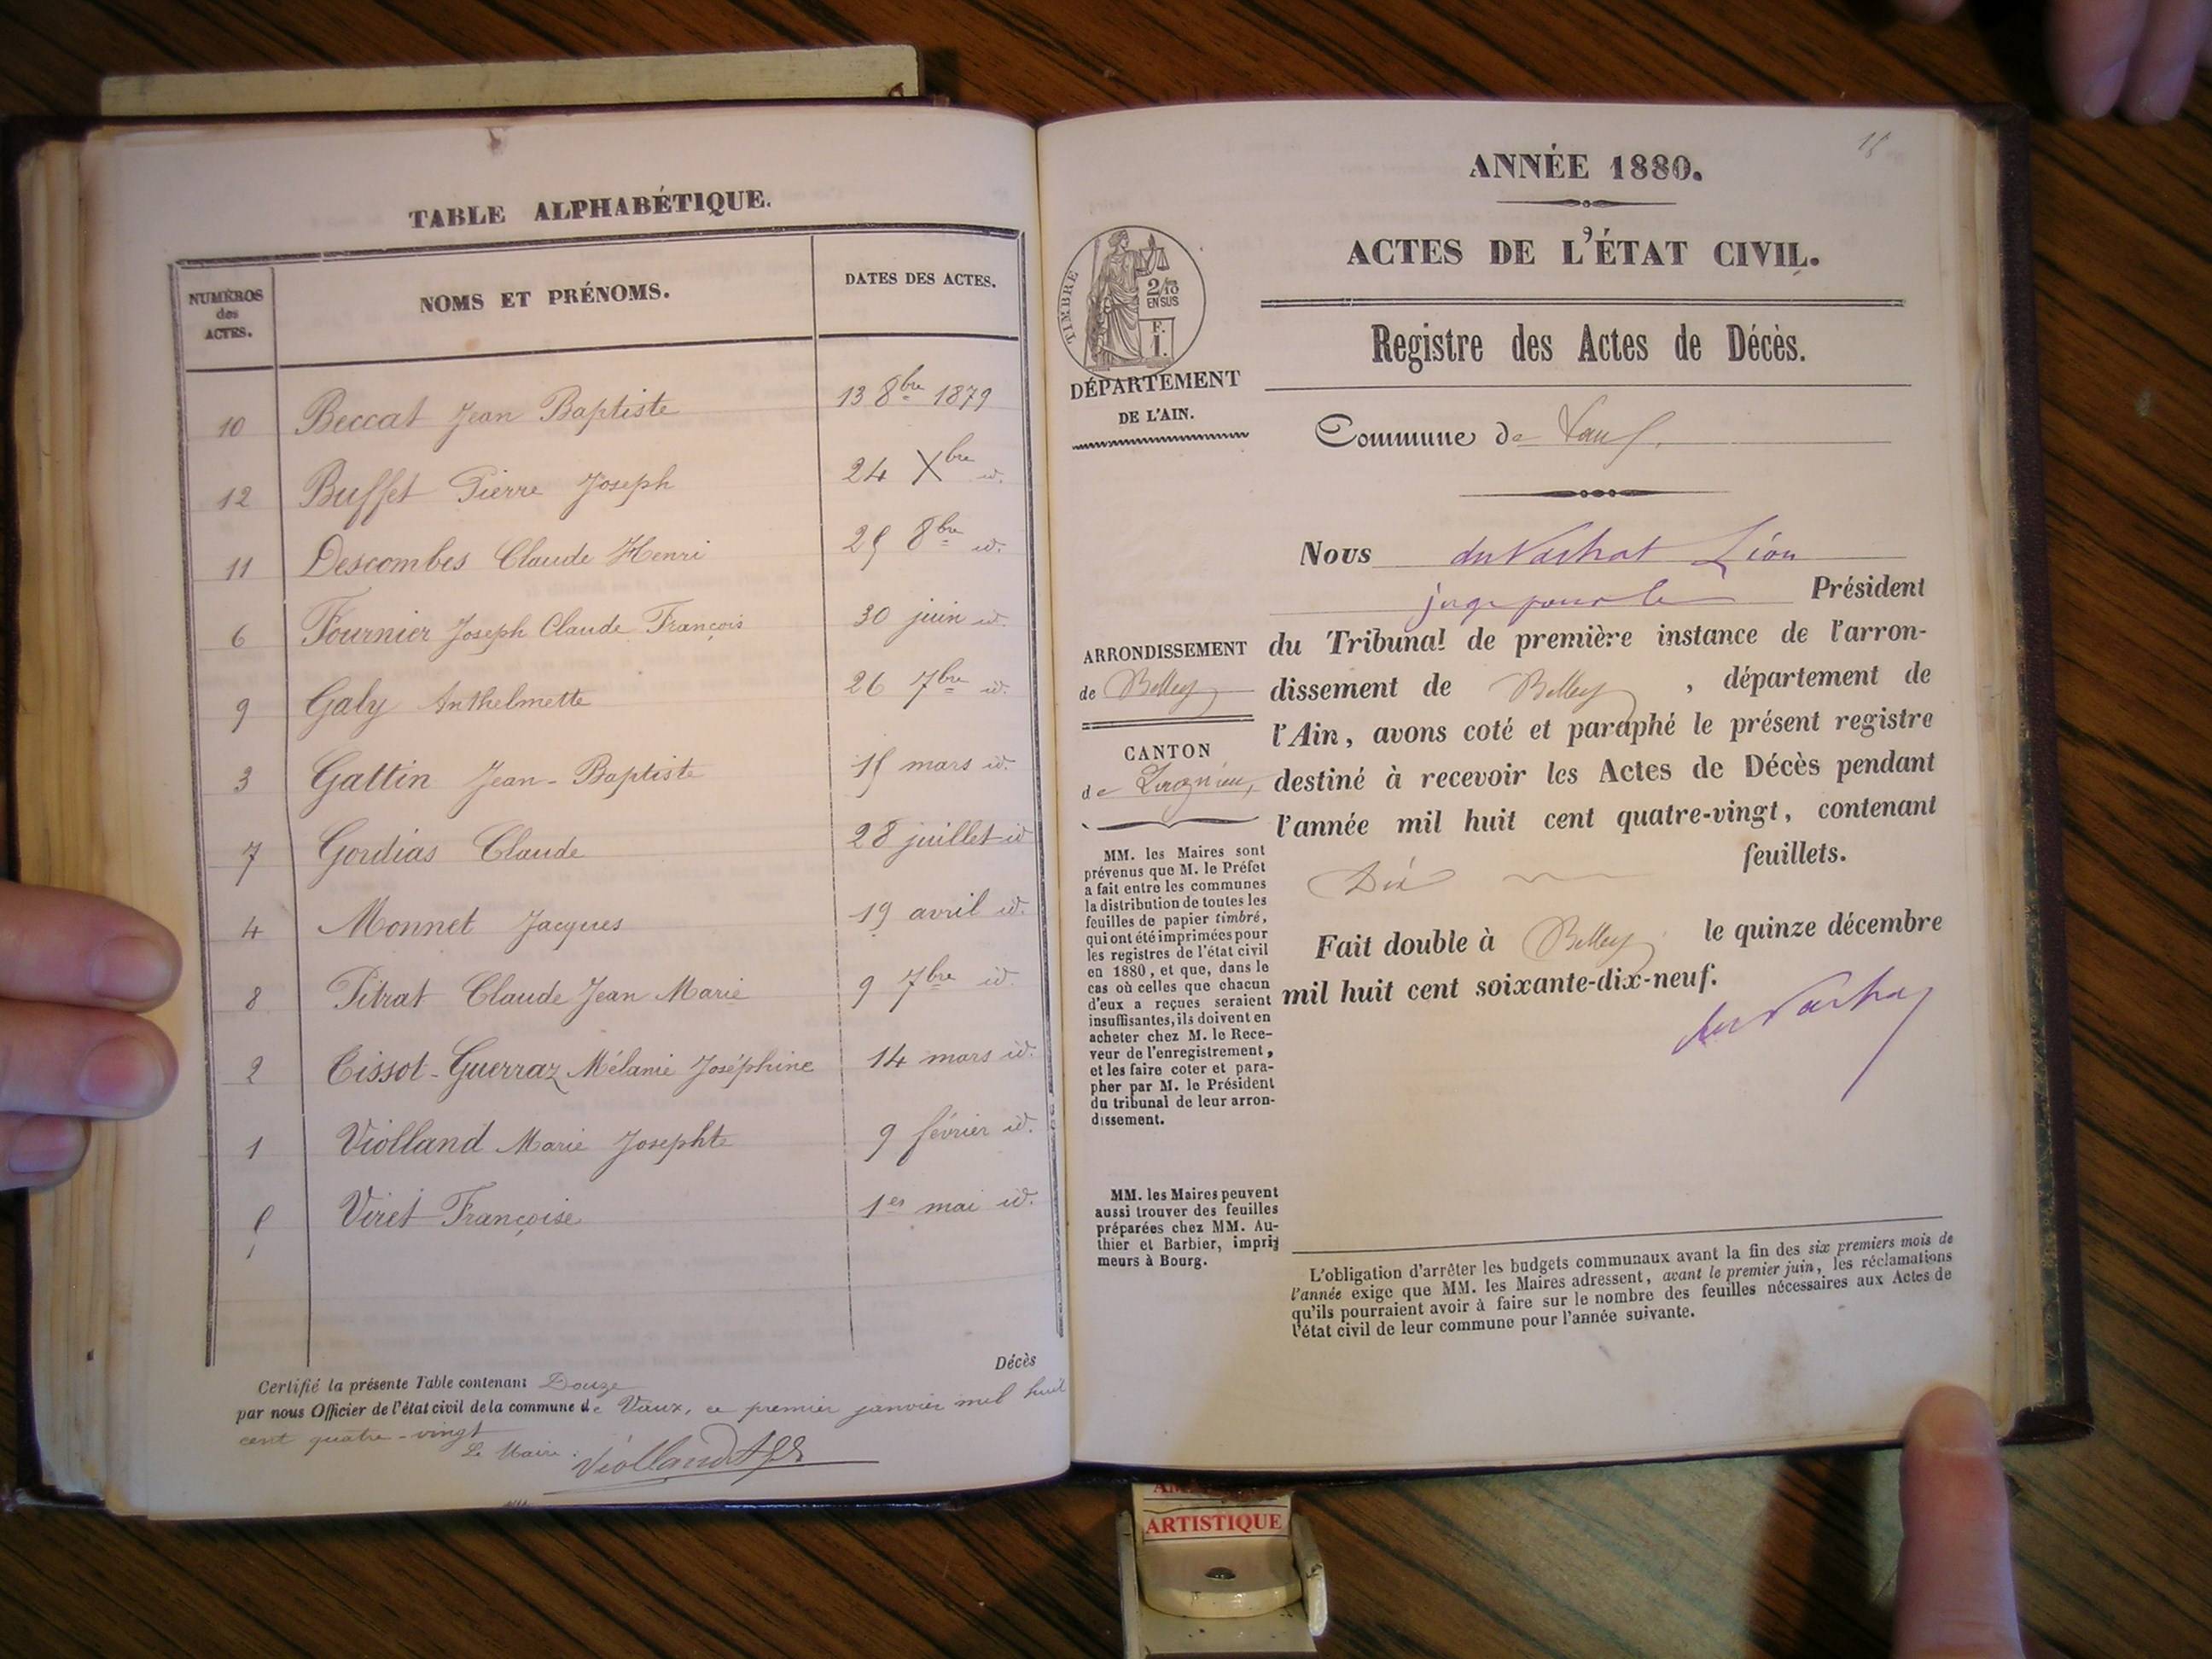 TABLE ALPHABÉTIQUE.
NUMÉROS des ACTES. NOMS ET PRÉNOMS. DATES DES ACTES.
10 Beccat Jean Baptiste 13 8bre 1879
12 Buffet Pierre Joseph 24 Xbre id.
11 Descombes Claude Henri 25 8bre id.
6 Fournier Joseph Claude François 30 juin id.
9 Galy Anthelmette 26 7bre id.
3 Gattin Jean-Baptiste 15 mars id.
7 Gordias Claude 28 juillet id
4 Monnet Jacques 19 avril id.
8 Pitrat Claude Jean Marie 9 7bre id.
2 Tissot-Guerraz Mélanie Joséphine 14 mars id.
1 Violland Marie Josephte 9 février id.
5 Viret Françoise 1er mai id.
Certifié la présente Table contenant Douze Décès
par nous Officier de l'état civil de la commune de Vaux, ce premier janvier mil huit
cent quatre-vingt
Le Maire : Violland
15
ANNÉE 1880.
ACTES DE L'ÉTAT CIVIL.
Registre des Actes de Décès.
TIMBRE
2/10
EN SUS
F.
1.
DÉPARTEMENT
DE L'AIN.
Commune de Vaux.
Nous du Vachat Léon
juge pour le Président
du Tribunal de première instance de l'arron-
dissement de Belley, département de
l'Ain, avons coté et paraphé le présent registre
destiné à recevoir les Actes de Décès pendant
l'année mil huit cent quatre-vingt, contenant
Dix feuillets.
Fait double à Belley le quinze décembre
mil huit cent soixante-dix-neuf.
du Vachat
ARRONDISSEMENT
de Belley
CANTON
de Lagnieu,
MM. les Maires sont
prévenus que M. le Préfet
a fait entre les communes
la distribution de toutes les
feuilles de papier timbré,
qui ont été imprimées pour
les registres de l'état civil
en 1880, et que, dans le
cas où celles que chacun
d'eux a reçues seraient
insuffisantes, ils doivent en
acheter chez M. le Rece-
veur de l'enregistrement,
et les faire coter et para-
pher par M. le Président
du tribunal de leur arron-
dissement.
MM. les Maires peuvent
aussi trouver des feuilles
préparées chez MM. Au-
thier et Barbier, impri-
meurs à Bourg.
L'obligation d'arrêter les budgets communaux avant la fin des six premiers mois de
l'année exige que MM. les Maires adressent, avant le premier juin, les réclamations
qu'ils pourraient avoir à faire sur le nombre des feuilles nécessaires aux Actes de
l'état civil de leur commune pour l'année suivante.
ARTISTIQUE